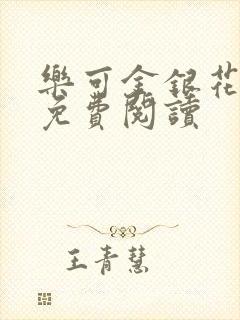 樂可金銀花
免費閱讀
王青慧